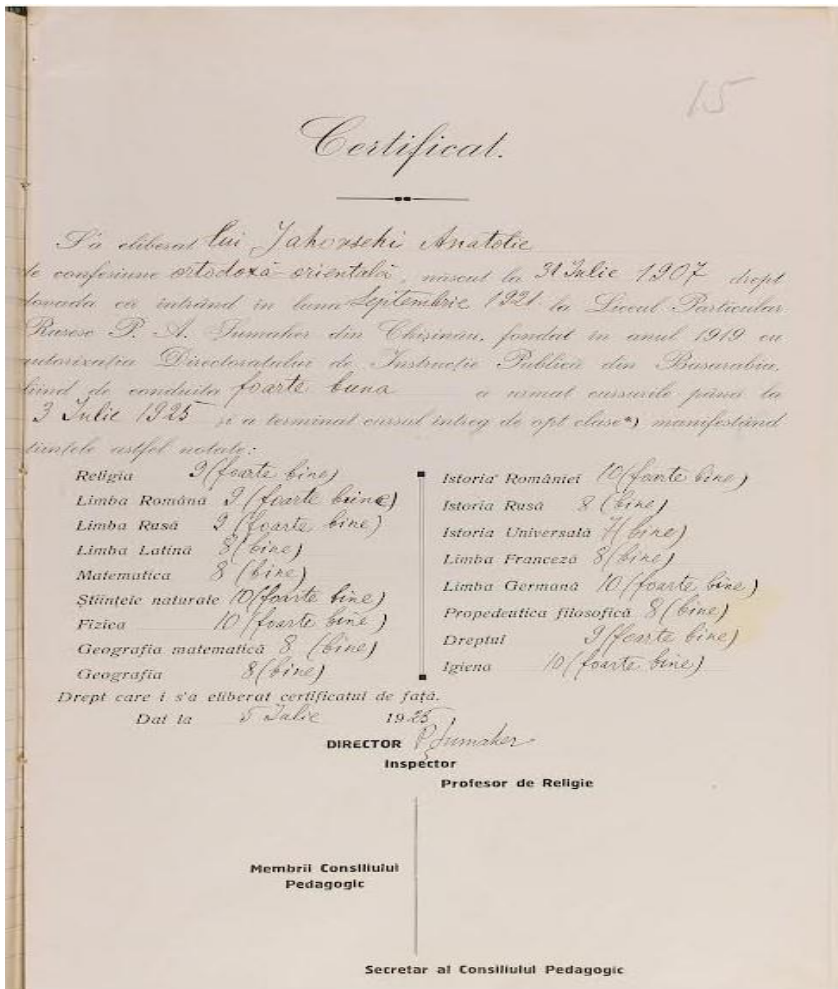 15
Certificat.
S'a eliberat lui Jakovschi Anatolie
de confesiune ortodoxă-orientală, născut la 31 Iulie 1907 drept
dovada ca intrând in luna Septembrie 1921 la Liceul Particular
Rusesc P. A. Șumaher din Chișinău, fondat in anul 1919 cu
autorizația Directoratului de Instrucție Publică din Basarabia,
fiind de conduita foarte buna a urmat cursurile pâna la
3 Iulie 1925 și a terminat cursul intreg de opt clase*) manifestând
științele astfel notate:
Religia 9 (foarte bine)
Limba Română 9 (foarte bine)
Limba Rusă 9 (foarte bine)
Limba Latină 8 (bine)
Matematica 8 (bine)
Științele naturale 10 (foarte bine)
Fizica 10 (foarte bine)
Geografia matematică 8 (bine)
Geografia 8 (bine)
Istoria României 10 (foarte bine)
Istoria Rusă 8 (bine)
Istoria Universală 7 (bine)
Limba Franceză 8 (bine)
Limba Germană 10 (foarte bine)
Propedeutica filosofică 8 (bine)
Dreptul 9 (foarte bine)
Igiena 10 (foarte bine)
Drept care i s'a eliberat certificatul de față.
Dat la 5 Iulie 1925
DIRECTOR P. Șumaher
Inspector
Profesor de Religie
Membrii Consiliului
Pedagogic
Secretar al Consiliului Pedagogic